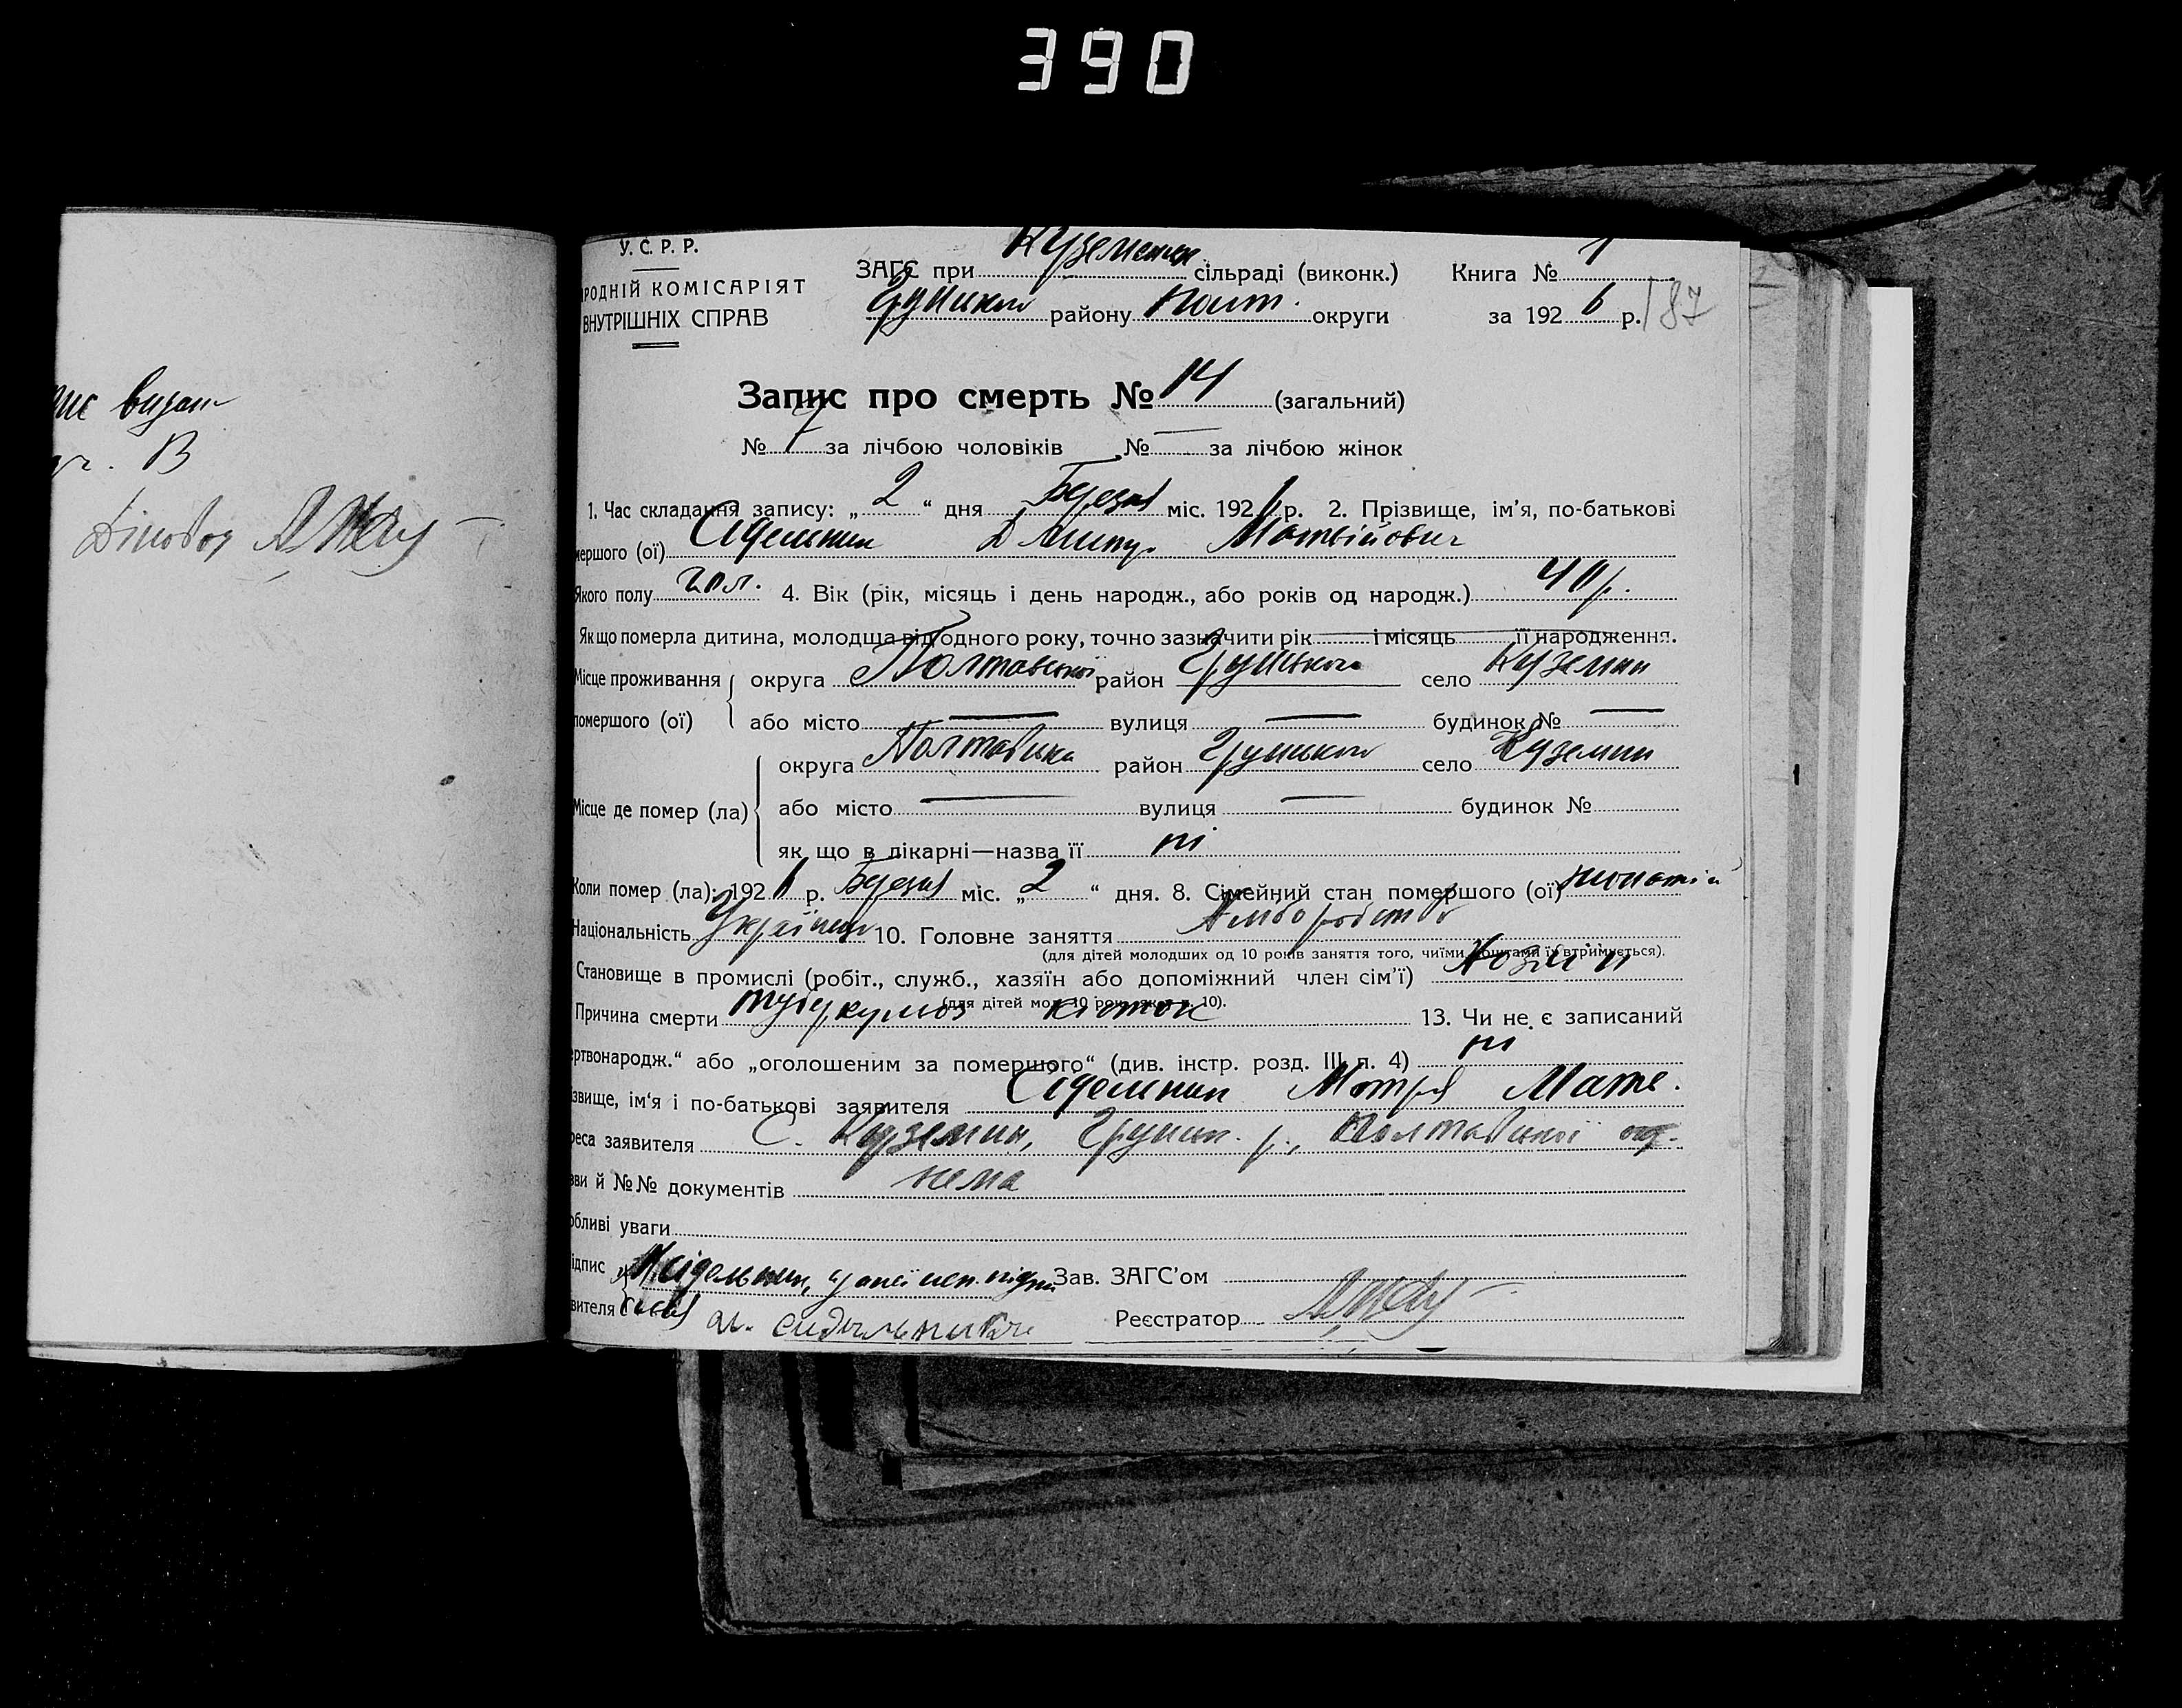 390
ис видат
В
Діловод
У.С.Р.Р.
РОДНІЙ КОМІСАРІЯТ
ВНУТРІШНІХ СПРАВ
ЗАГС при Куземен. сільраді (виконк.) Книга № 1
району Полт. округи за 1926 р. 187
Запис про смерть № 14 (загальний)
№ 7 за лічбою чоловіків № — за лічбою жінок
1. Час складання запису: „ 2 “ дня Березня міс. 1926 р. 2. Прізвище, ім'я, по-батькові
мершого (ої) Сідельник Дмитр. Матвійович
Якого полу чол. 4. Вік (рік, місяць і день народж., або років од народж.) 40 р.
Як що померла дитина, молодща від одного року, точно зазначити рік і місяць її народження.
Місце проживання округа Полтавської район Грунського село Куземин
помершого (ої) або місто — вулиця — будинок № —
округа Полтавська район село Куземин
Місце де помер (ла) або місто — вулиця — будинок №
як що в лікарні—назва її ні
Коли помер (ла): 1926 р. Березня міс. „ 2 “ дня. 8. Сімейний стан помершого (ої) жонатий
Національність Українець 10. Головне заняття хліборобство
(для дітей молодших од 10 років заняття того, чиїми коштами їх втримується).
Становище в промислі (робіт., служб., хазяїн або допоміжний член сім'ї) Хазяїн
(для дітей мол. 10 рок., як і п. 10).
Причина смерти туберкульоз кісток 13. Чи не є записаний
ертвонародж.“ або „оголошеним за помершого“ (див. інстр. розд. III п. 4) ні
звище, ім'я і по-батькові заявителя Сідельник Мотря Матв.
реса заявителя С. Куземин, Грунськ. р., Полтавської ок.
зви й №№ документів нема
обливі уваги
ідпис М Сідельник, Зав. ЗАГС'ом
вителя Реєстратор